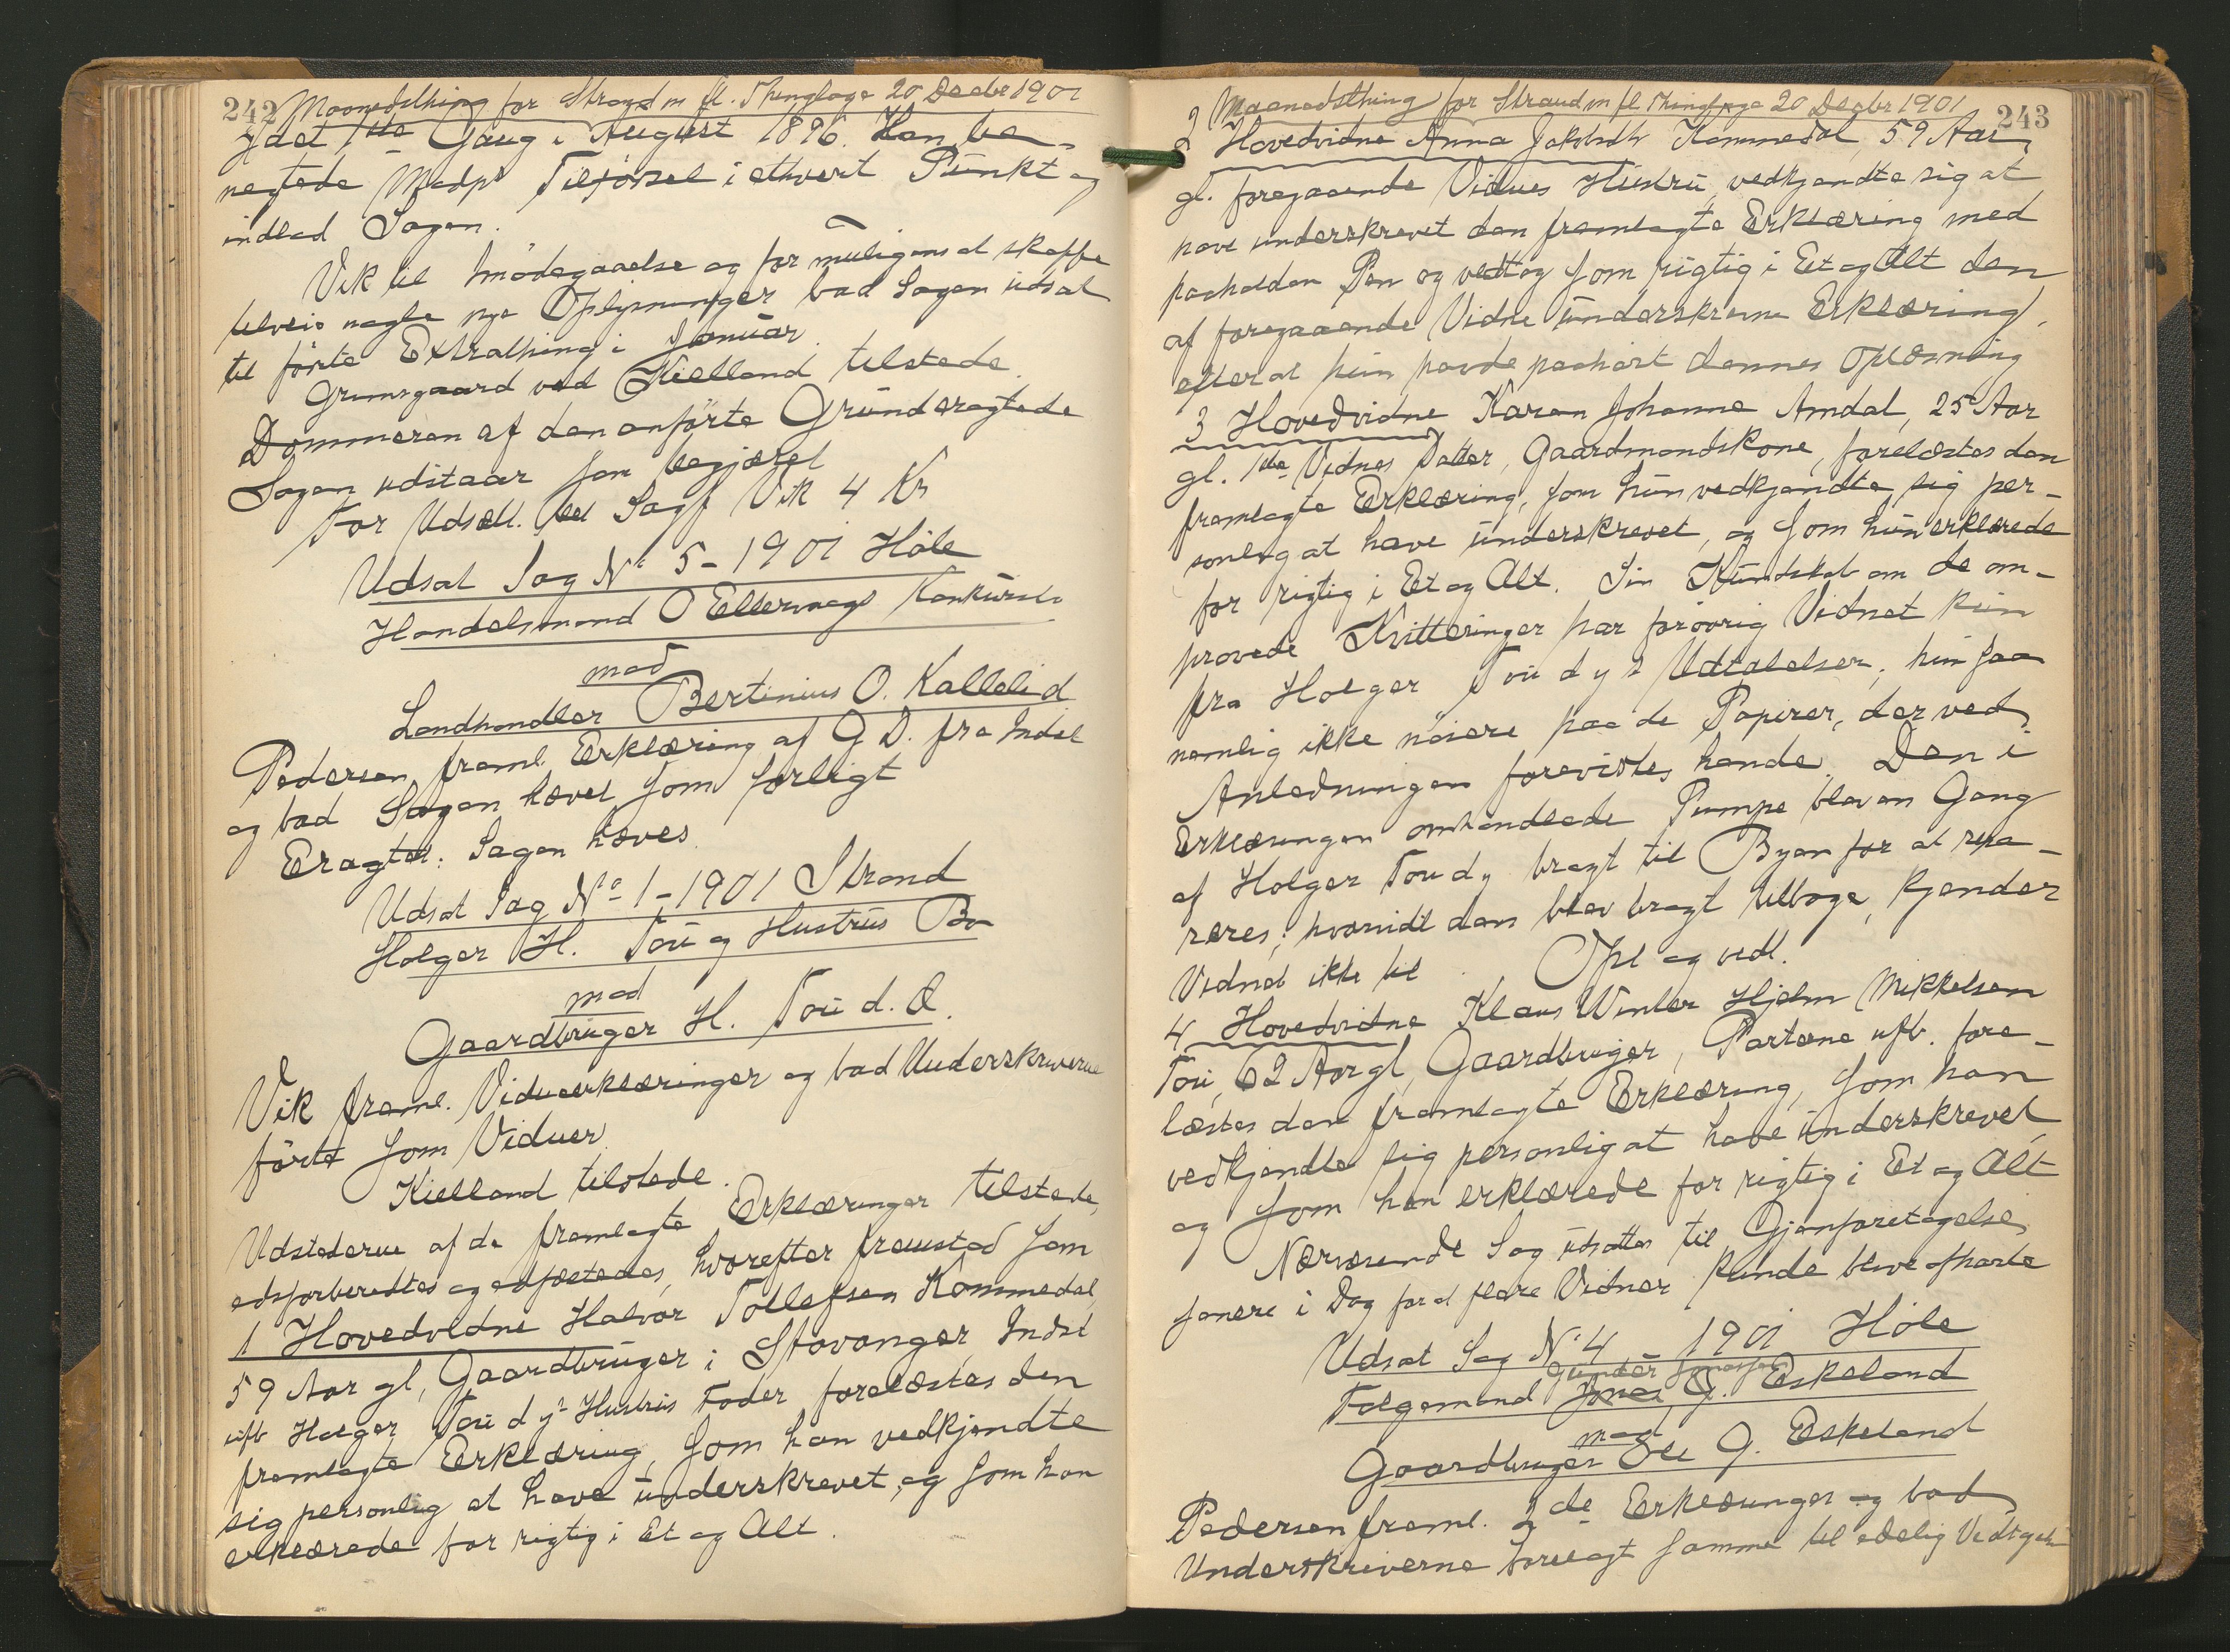 242 Maanedsthing for Strand m fl. Thinglage 20 Decbr 1901
ydet 1ste Gang i August 1896. Han be-
negtede Modp's Tilførsel i ethvert Punkt og
indlod Sagen.
Vik til Imødegaaelse og for muligens at skaffe
tilveie nogle nye Oplysninger bad Sagen udsat
til første Extrathing i Januar.
Grimsgaard ved Kielland tilstede.
Dommeren af den anførte Grund eragtede
Sagen udstaar som begjæret
For Udsætt. bet Sagf Vik 4 Kr
Udsat Sag No 5 - 1901 Høle
Handelsmand O Ellervaags Konkursbo
mod
Landhandler Bertinius O. Kallelid
Pedersen framl. Erklæring af G D. fra Indst
og bad Sagen hævet som forligt
Eragtet: Sagen hæves.
Udsat Sag No 1 - 1901 Strand
Holger H. Tou og Hustrus Bo
mod
Gaardbruger H. Tou d. Æ.
Vik framl. Vidneerklæringer og bad Underskriverne
førte som Vidner.
Kielland tilstede.
Udstederne af de fremlagte Erklæringer tilstede,
edsforberedtes og edfæstedes, hvorefter fremstod som
1 Hovedvidne Halvor Tollefsen Kommedal,
59 Aar gl, Gaardbruger i Stavanger Indst
ufb Holger Tou d y's Hustrus Fader forelæstes den
fremlagte Erklæring, som han vedkjendte
sig personlig at have underskrevet, og som han
erklærede for rigtig i Et og Alt.
Maanedsthing for Strand m fl Thinglage 20 Decbr 1901 243
2 Hovedvidne Anna Jakobsdtr Kommedal, 59 Aar
gl. foregaaende Vidnes Hustru, vedkjendte sig at
have underskrevet den fremlagte Erklæring med
paaholden Pen og vedtog som rigtig i Et og Alt den
af foregaaende Vidne underskrevne Erklæring,
efterat hun havde paahørt dennes Oplæsning
3 Hovedvidne Karen Johanne Amdal, 25 Aar
gl. 1ste Vidnes Datter, Gaardmandskone, forelæstes den
fremlagte Erklæring, som hun vedkjendte sig per-
sonlig at have underskrevet, og som hun erklærede
for rigtig i Et og Alt. Sin Kundskab om de om-
prøvede Kvitteringer har forøvrig Vidnet kun
fra Holger Tou d y's Udtalelser; hun saa
nemlig ikke nøiere paa de Papirer, der ved
Anledningen forevistes hende. Den i
Erklæringen omhandlede Pumpe blev en Gang
af Holger Tou d y bragt til Byen for at repa-
reres; hvorvidt den blev bragt tilbage, kjender
Vidnet ikke til. Opl og vedt.
4 Hovedvidne Klaus Winter Hjelm Mikkelsen
Tou, 62 Aar gl, Gaardbruger, Parterne ufb. fore-
læstes den fremlagte Erklæring, som han
vedkjendte sig personlig at have underskrevet,
og som han erklærede for rigtig i Et og Alt
Nærværende Sag udsattes til Gjenforetagelse
senere i Dag ford flere Vidner kunde blive afhørte
Udsat Sag No 4 1901 Høle
Gunder Jonassen
Følgemand Jonas G. Eskeland
mod
Gaardbruger Ole G. Eskeland
Pedersen framl. 2de Erklæringer og bad
Underskriverne forelagt samme til edelig Vedtagelse